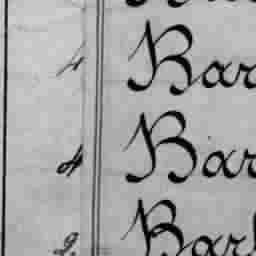 4 Bar
4 Bar
2. Barl